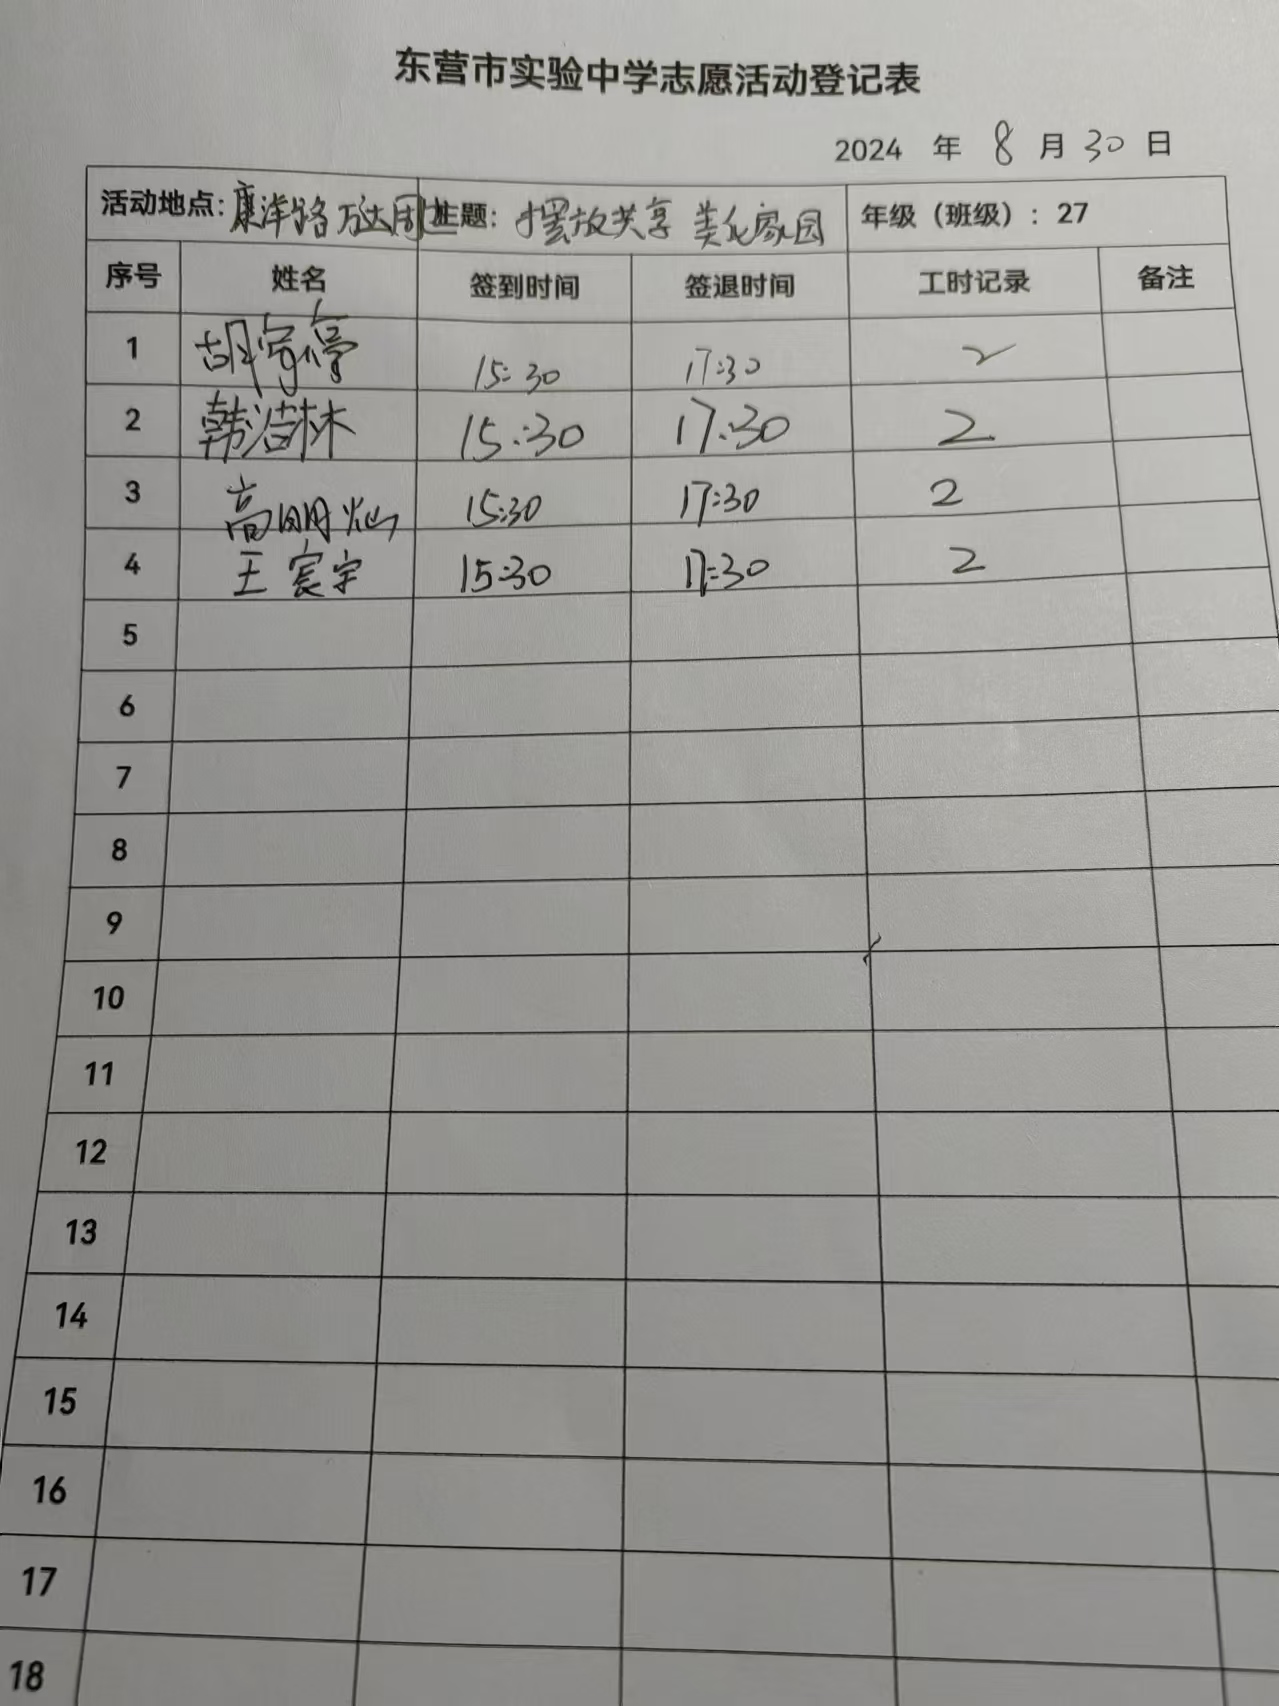 东营市实验中学志愿活动登记表
2024 年 8 月 30 日
活动地点：康洋路万达周边 主题：摆放共享 美化家园 年级（班级）：27
序号 姓名 签到时间 签退时间 工时记录 备注
1 胡寓停 15:30 17:30 2
2 韩浩林 15:30 17:30 2
3 高明灿 15:30 17:30 2
4 王宸宇 15:30 17:30 2
5
6
7
8
9
10
11
12
13
14
15
16
17
18